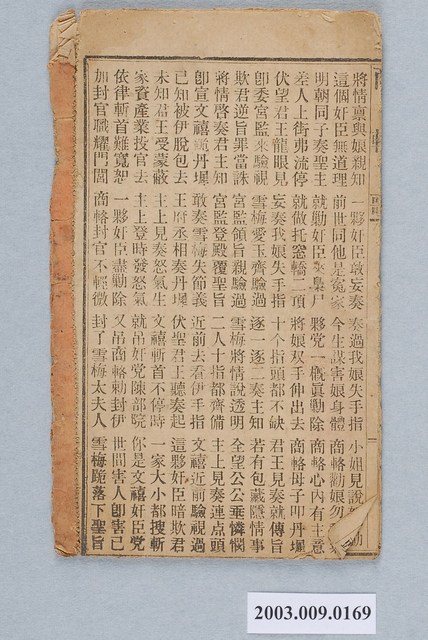 將情禀與娘親知 一夥奸臣敢妄奏 奏過我娘失手指 小姐見說
這個奸臣無道理 前世同他是冤家 今生謀害娘身體 商輅勸娘勿
明朝同子奏聖主 就勦奸臣來梟尸 夥党一概眞勦除 商輅心內有主意
差人上街弗流停 就做托窓轎二頂 將娘双手伸出去 商輅母子叩丹墀
伏望君王龍眼見 妄奏我娘失手指 十个指頭都不缺 君王見奏就傳旨
卽委宮監來驗視 雪梅愛玉齊驗過 逐一逐二奏主知 若有包藏隱情事
欺君逆旨罪當誅 宮監領旨親驗過 雪梅將情說透明 全望公公垂憐憫
將情啓奏君主知 宮監登殿覆聖旨 二人十指都齊備 主上見奏連点頭
卽宣文禧跪丹墀 敢奏雪梅失節義 近前去看伊手指 文禧近前驗視過
已知被伊脫包去 王府丞相奏丹墀 伏聖君王聽奏起 這夥奸臣暗欺君
未知君王受蒙蔽 主上見奏怒氣生 文禧斬首不停時 一家大小都搜斬
家資產業投官去 主上登時發怒氣 就吊奸党陳部院 你是文禧奸臣党
依律斬首難寬恕 一夥奸臣盡勦除 又吊商輅勅封伊 世間害人卽害己
加封官職耀門閭 商輅封官不輕微 封了雪梅太夫人 雪梅跪落下聖旨
2003.009.0169